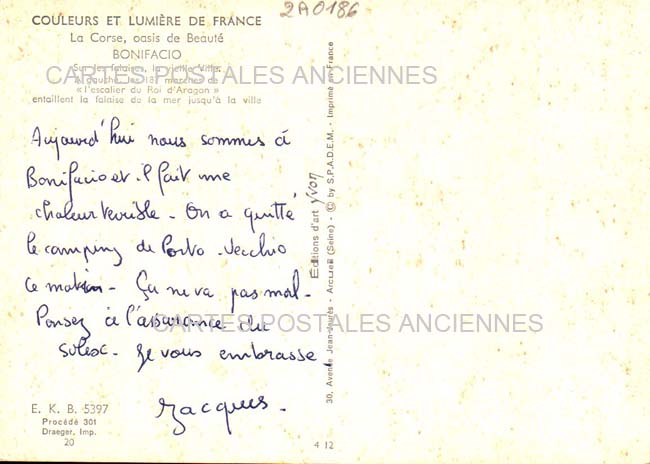 2A0186
COULEURS ET LUMIÈRE DE FRANCE
La Corse, oasis de Beauté
BONIFACIO
Sur les falaises, la vieille Ville.
A gauche, les 187 marches de
« l'escalier du Roi d'Aragon »
entaillent la falaise de la mer jusqu'à la ville
CARTES POSTALES ANCIENNES
Aujourd'hui nous sommes à
Bonifacio et il fait une
chaleur terrible - On a quitté
le camping de Porto-Vecchio
ce matin - Ça ne va pas mal -
Pensez à l'assurance du
solex - Je vous embrasse.
Jacques.
CARTES POSTALES ANCIENNES
E. K. B. 5397
Procédé 301
Draeger, Imp.
20
4 12
30, Avenue Jean-Jaurès - Arcueil (Seine) - © by S.P.A.D.E.M. - Imprimé en France
Éditions d'art yvon